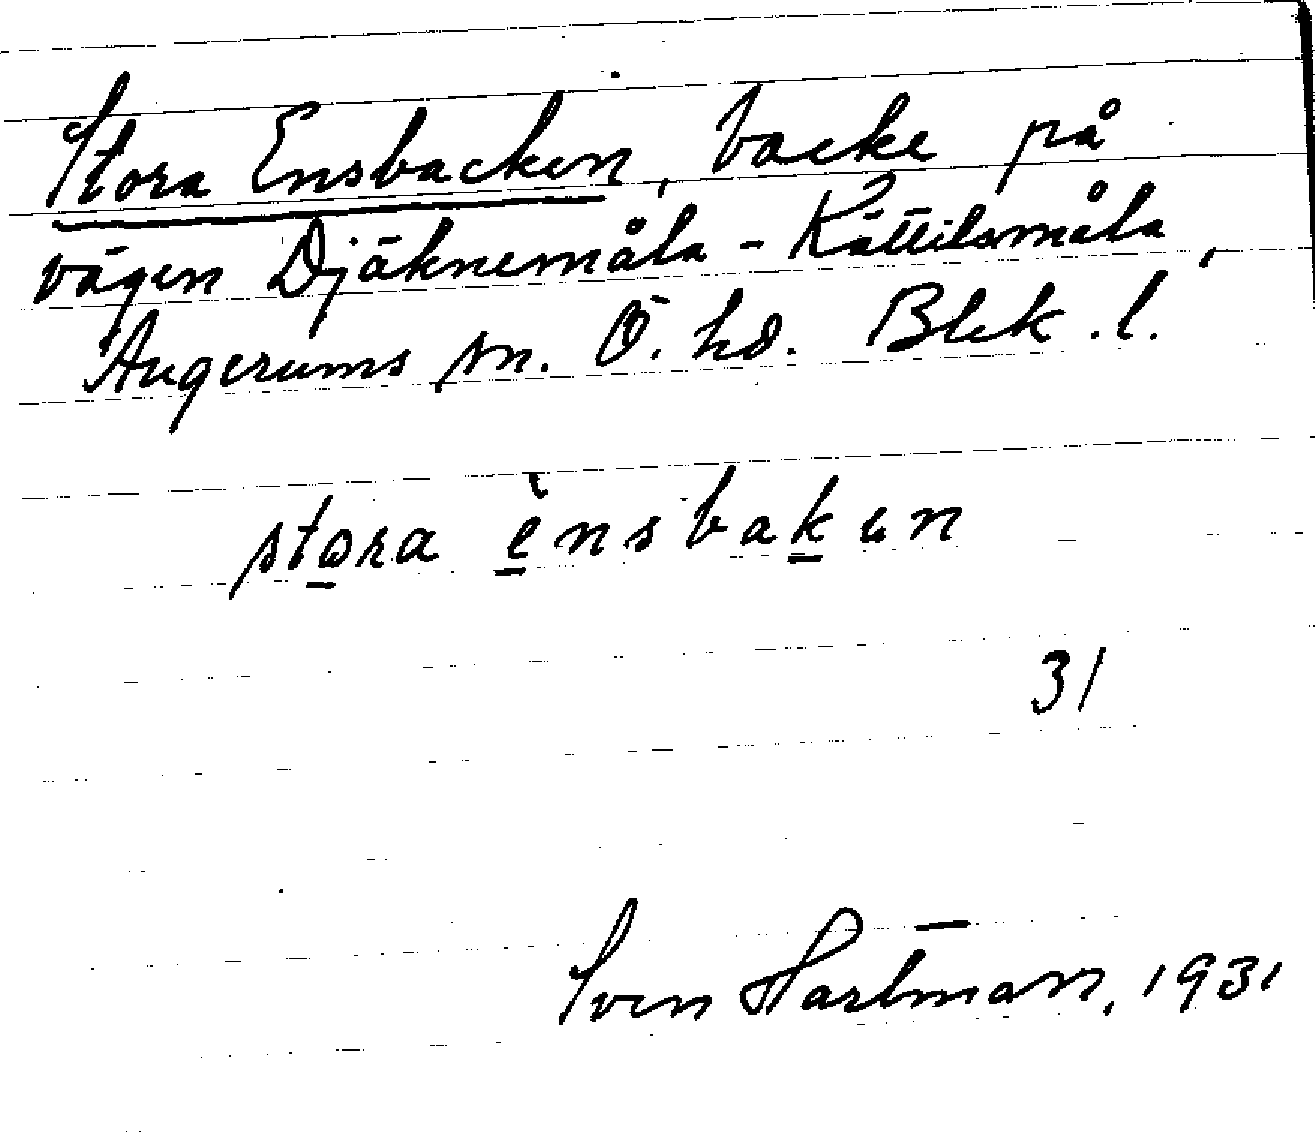 Stora Ensbacken, backe på
vägen Djäknemåla - Kättilsmåla,
Augerums sn. Ö. hd. Blek. l.
stora ènsbakɘn
31
Sven Hartman, 1931